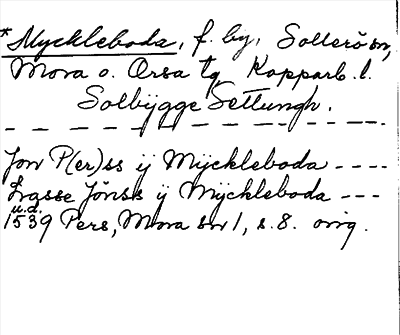 *Myckleboda, f. by, Sollerö sn,
Mora o. Orsa tg Kopparb. l.
Solbÿgge Settungh.
Jon P(er)ss ij Mÿckleboda ----
Lasse Jönss ij Mÿckleboda ---
u.d.
1539 Pers, Mora sn 1, s. 8. orig.